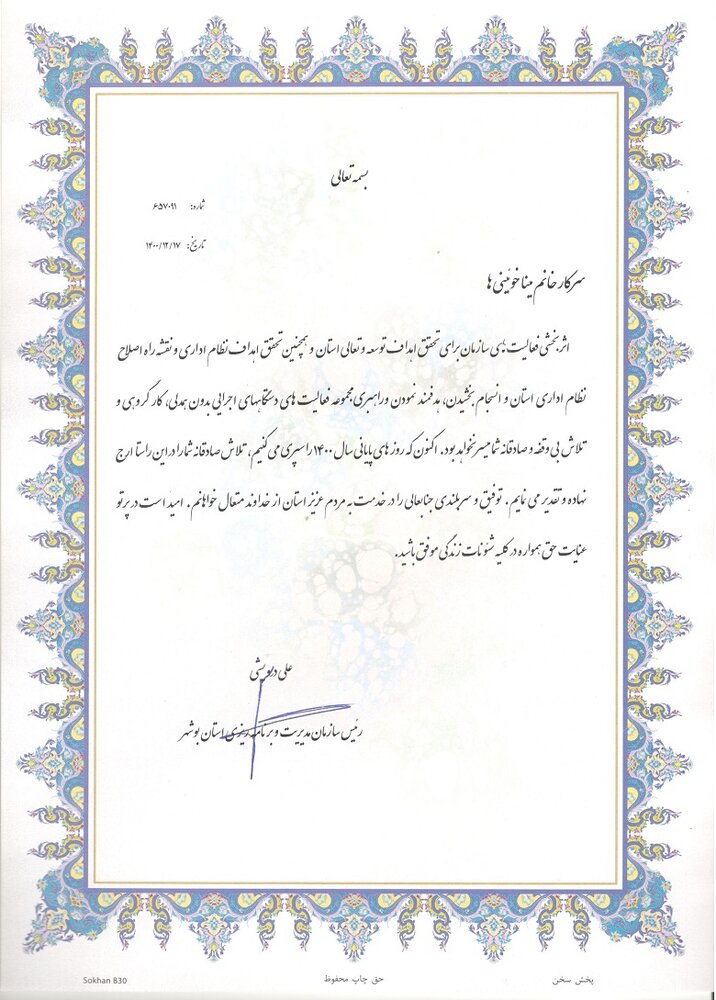 بسمه تعالی
شماره: ۶۵۷۰۹۱
تاریخ: ۱۴۰۰/۱۲/۱۷
سرکار خانم مینا خوئینی ها
اثربخشی فعالیت های سازمان برای تحقق اهداف توسعه و تعالی استان و همچنین تحقق اهداف نظام اداری و نقشه راه اصلاح
نظام اداری استان و انسجام بخشیدن، هدفمند نمودن و راهبری مجموعه فعالیت های دستگاههای اجرایی بدون همدلی، کار گروهی و
تلاش بی وقفه و صادقانه شما میسر نخواهد بود. اکنون که روزهای پایانی سال ۱۴۰۰ را سپری می کنیم، تلاش صادقانه شما را در این راستا ارج
نهاده و تقدیر می نمایم. توفیق و سربلندی جنابعالی را در خدمت به مردم عزیز استان از خداوند متعال خواهانم. امید است در پرتو
عنایت حق همواره در کلیه شئونات زندگی موفق باشید.
علی درویشی
رئیس سازمان مدیریت و برنامه ریزی استان بوشهر
پخش سخن
حق چاپ محفوظ
Sokhan B30